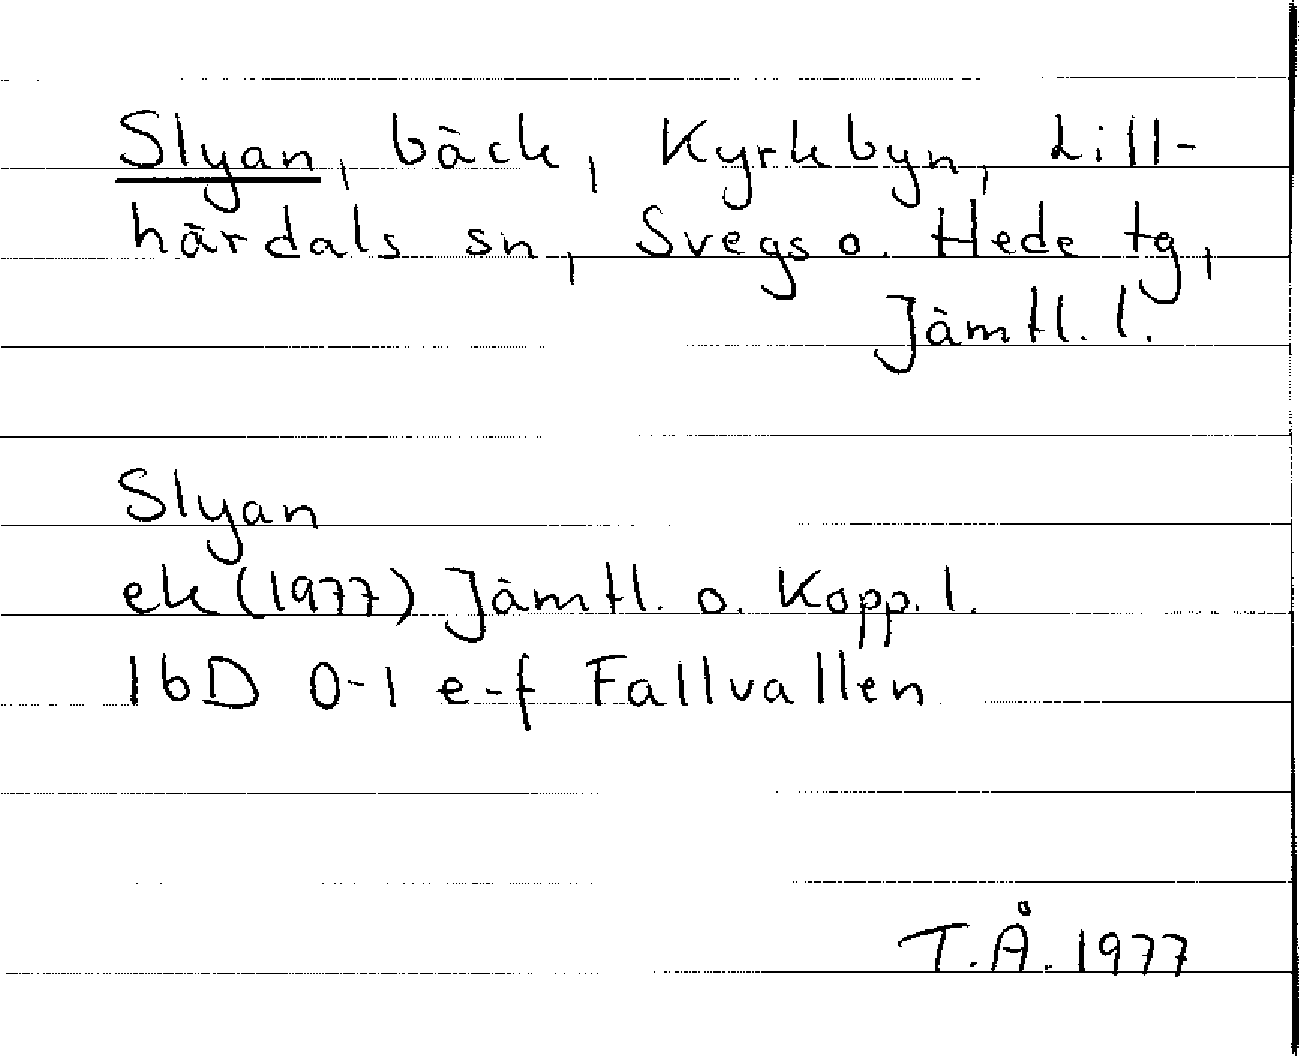 Slyan, bäck, Kyrkbyn, Lill-
härdals sn, Svegs o. Hede tg,
Jämtl. l.
Slyan
ek (1977) Jämtl. o. Kopp. l.
16D 0-1 e-f Fallvallen
T.Å. 1977